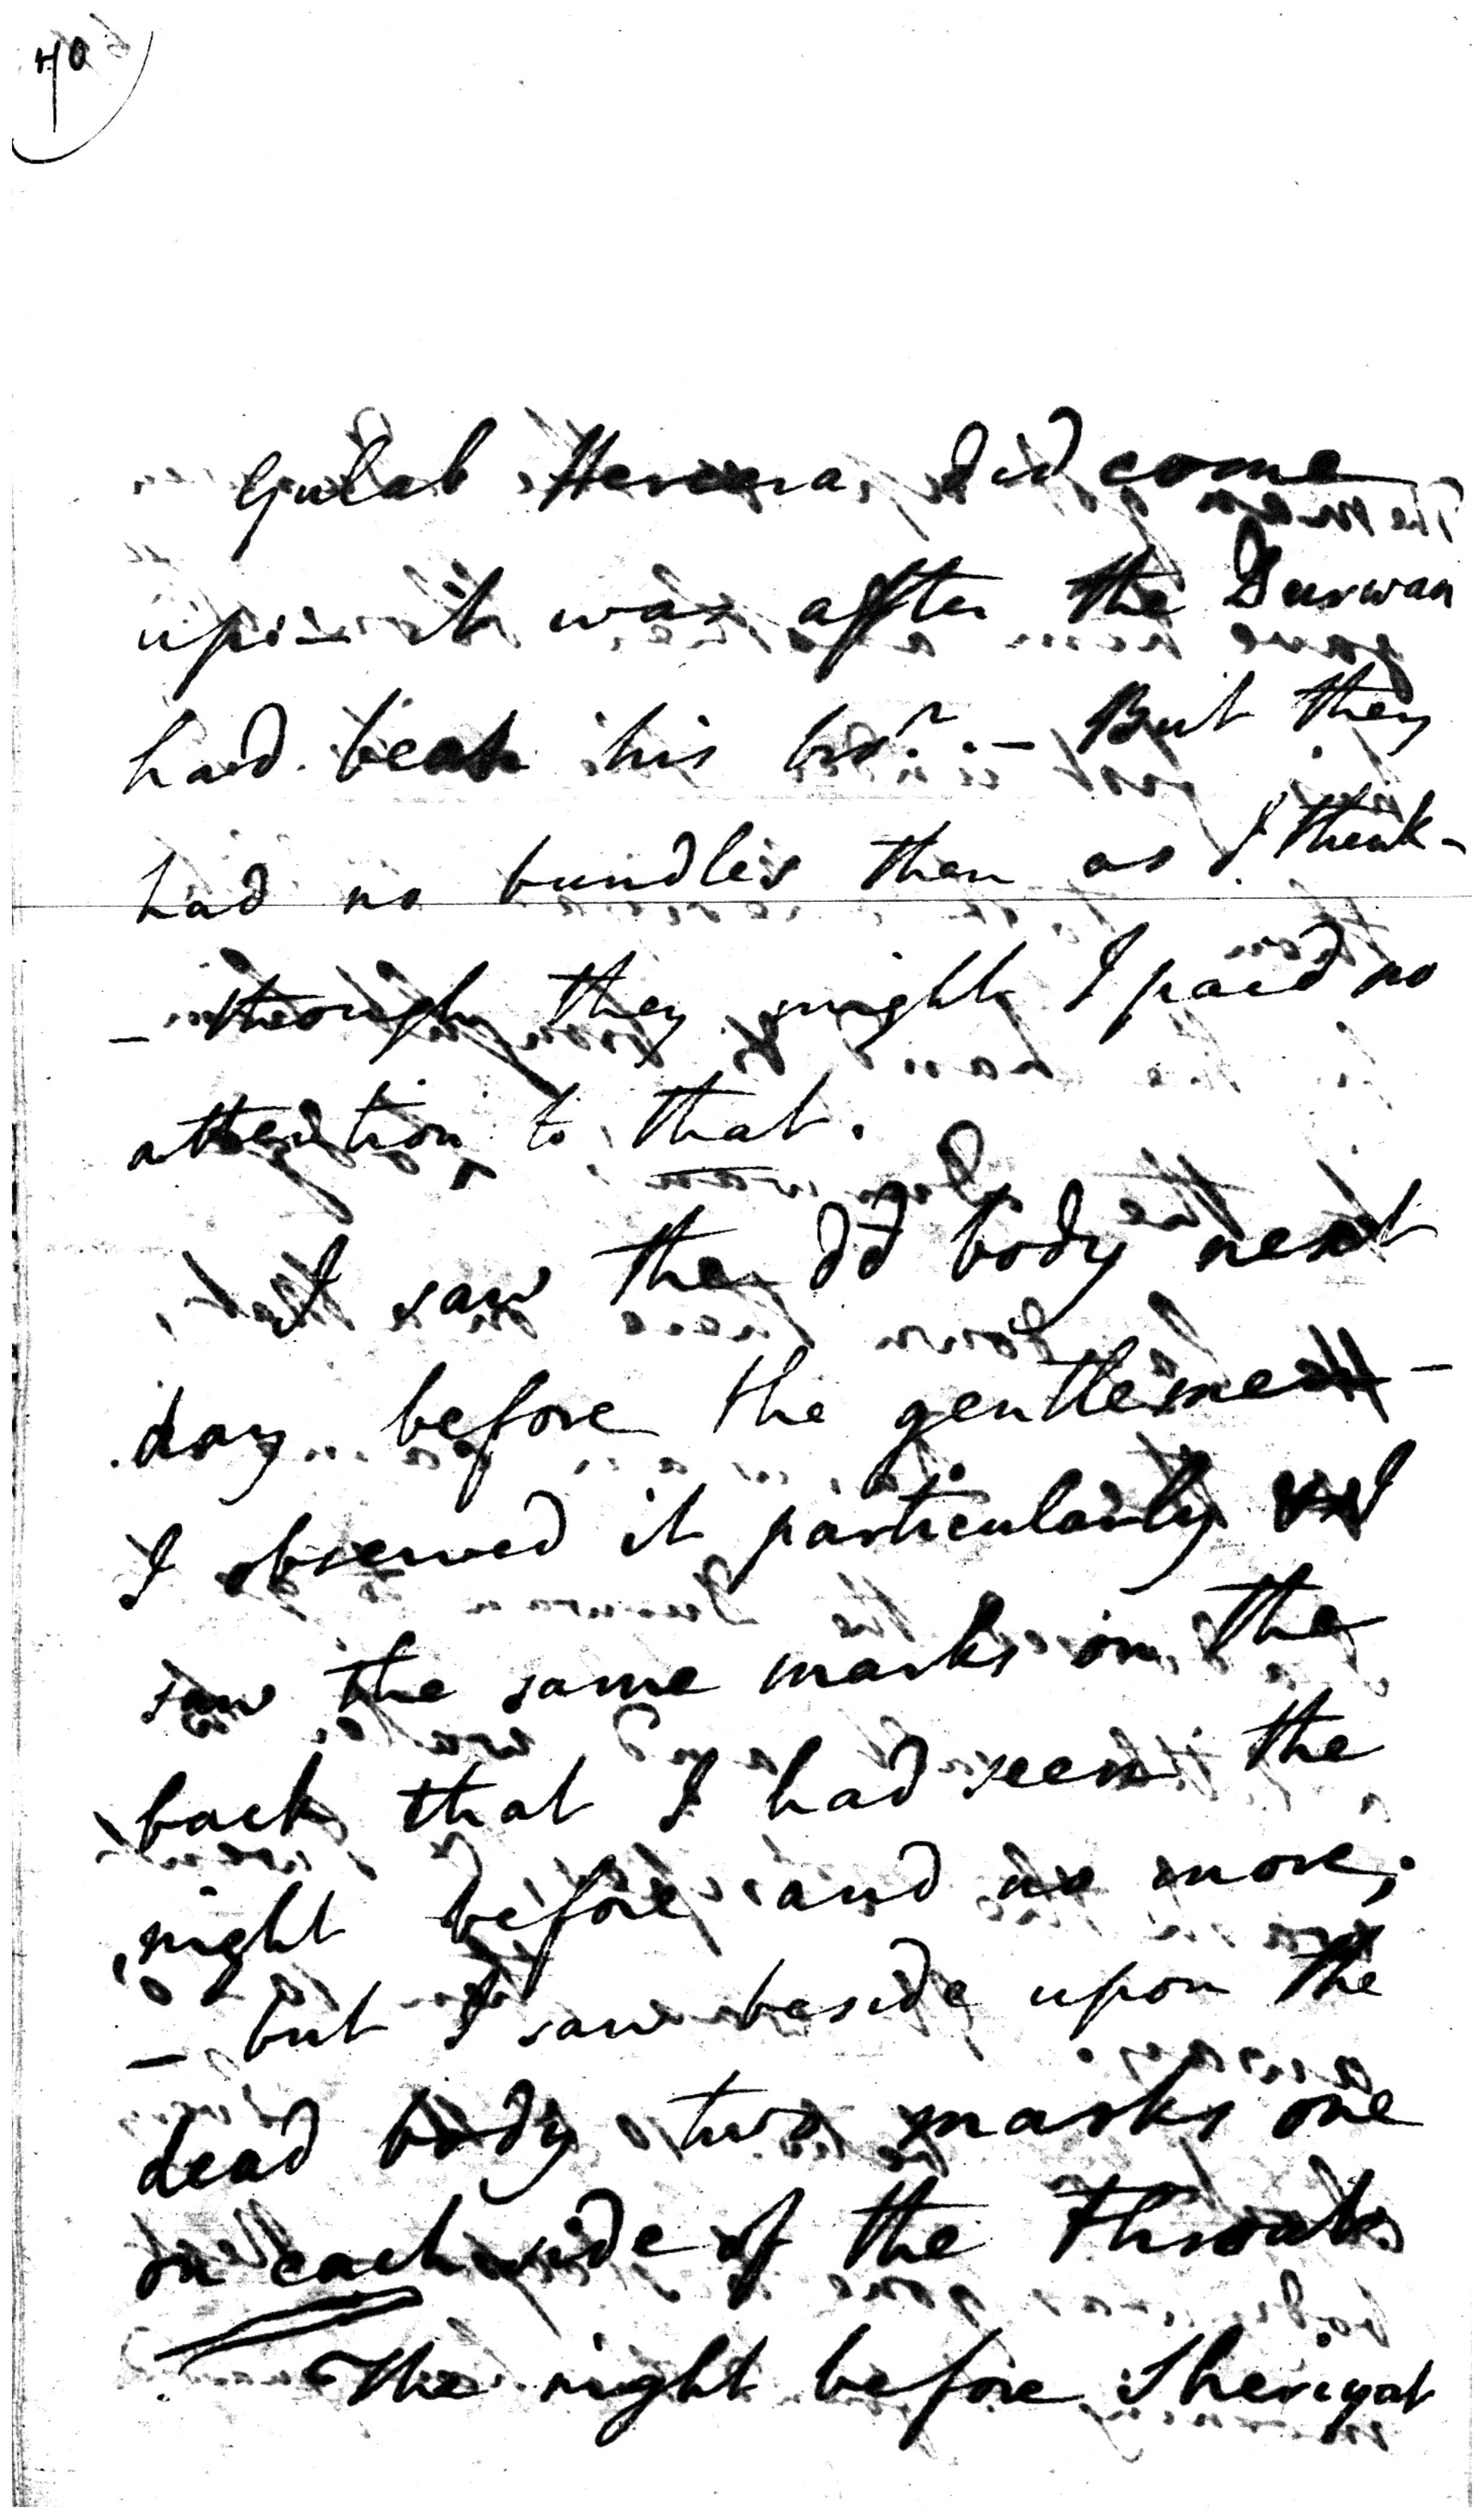 40
Gulab did come
up:— it was after the Durwan
had beat his bror.— But they
had no bundles then as I think-
— though they might I paid no
attention to that.
I saw the dd body next
day before the gentlemen —
I observed it particularly and
saw the same marks on the
back that I had seen the
night before and no more;
— but I saw beside upon the
dead body two marks one
on each side of the throat
The night before